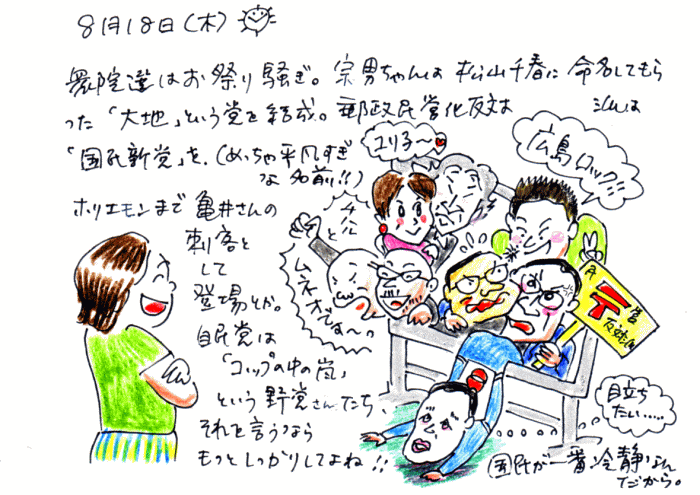 8月18日(木)
衆院選はお祭り騒ぎ。宗男ちゃんは松山千春に命名してもら
った「大地」という党を結成。郵政民営化反対
「国民新党」を、(めっちゃ平凡すぎ
な名前!!)
ホリエモンまで亀井さんの
刺客と
して
登場とか。
自民党は
「コップの中の嵐」
という野党さんたち、
それを言うなら
もっとしっかりしてよね!!
ユリ子〜
広島ロック!!
ムネオでぇ〜っ
〒
反対
目立ち
たい……
国民が一番冷静なん
だから。